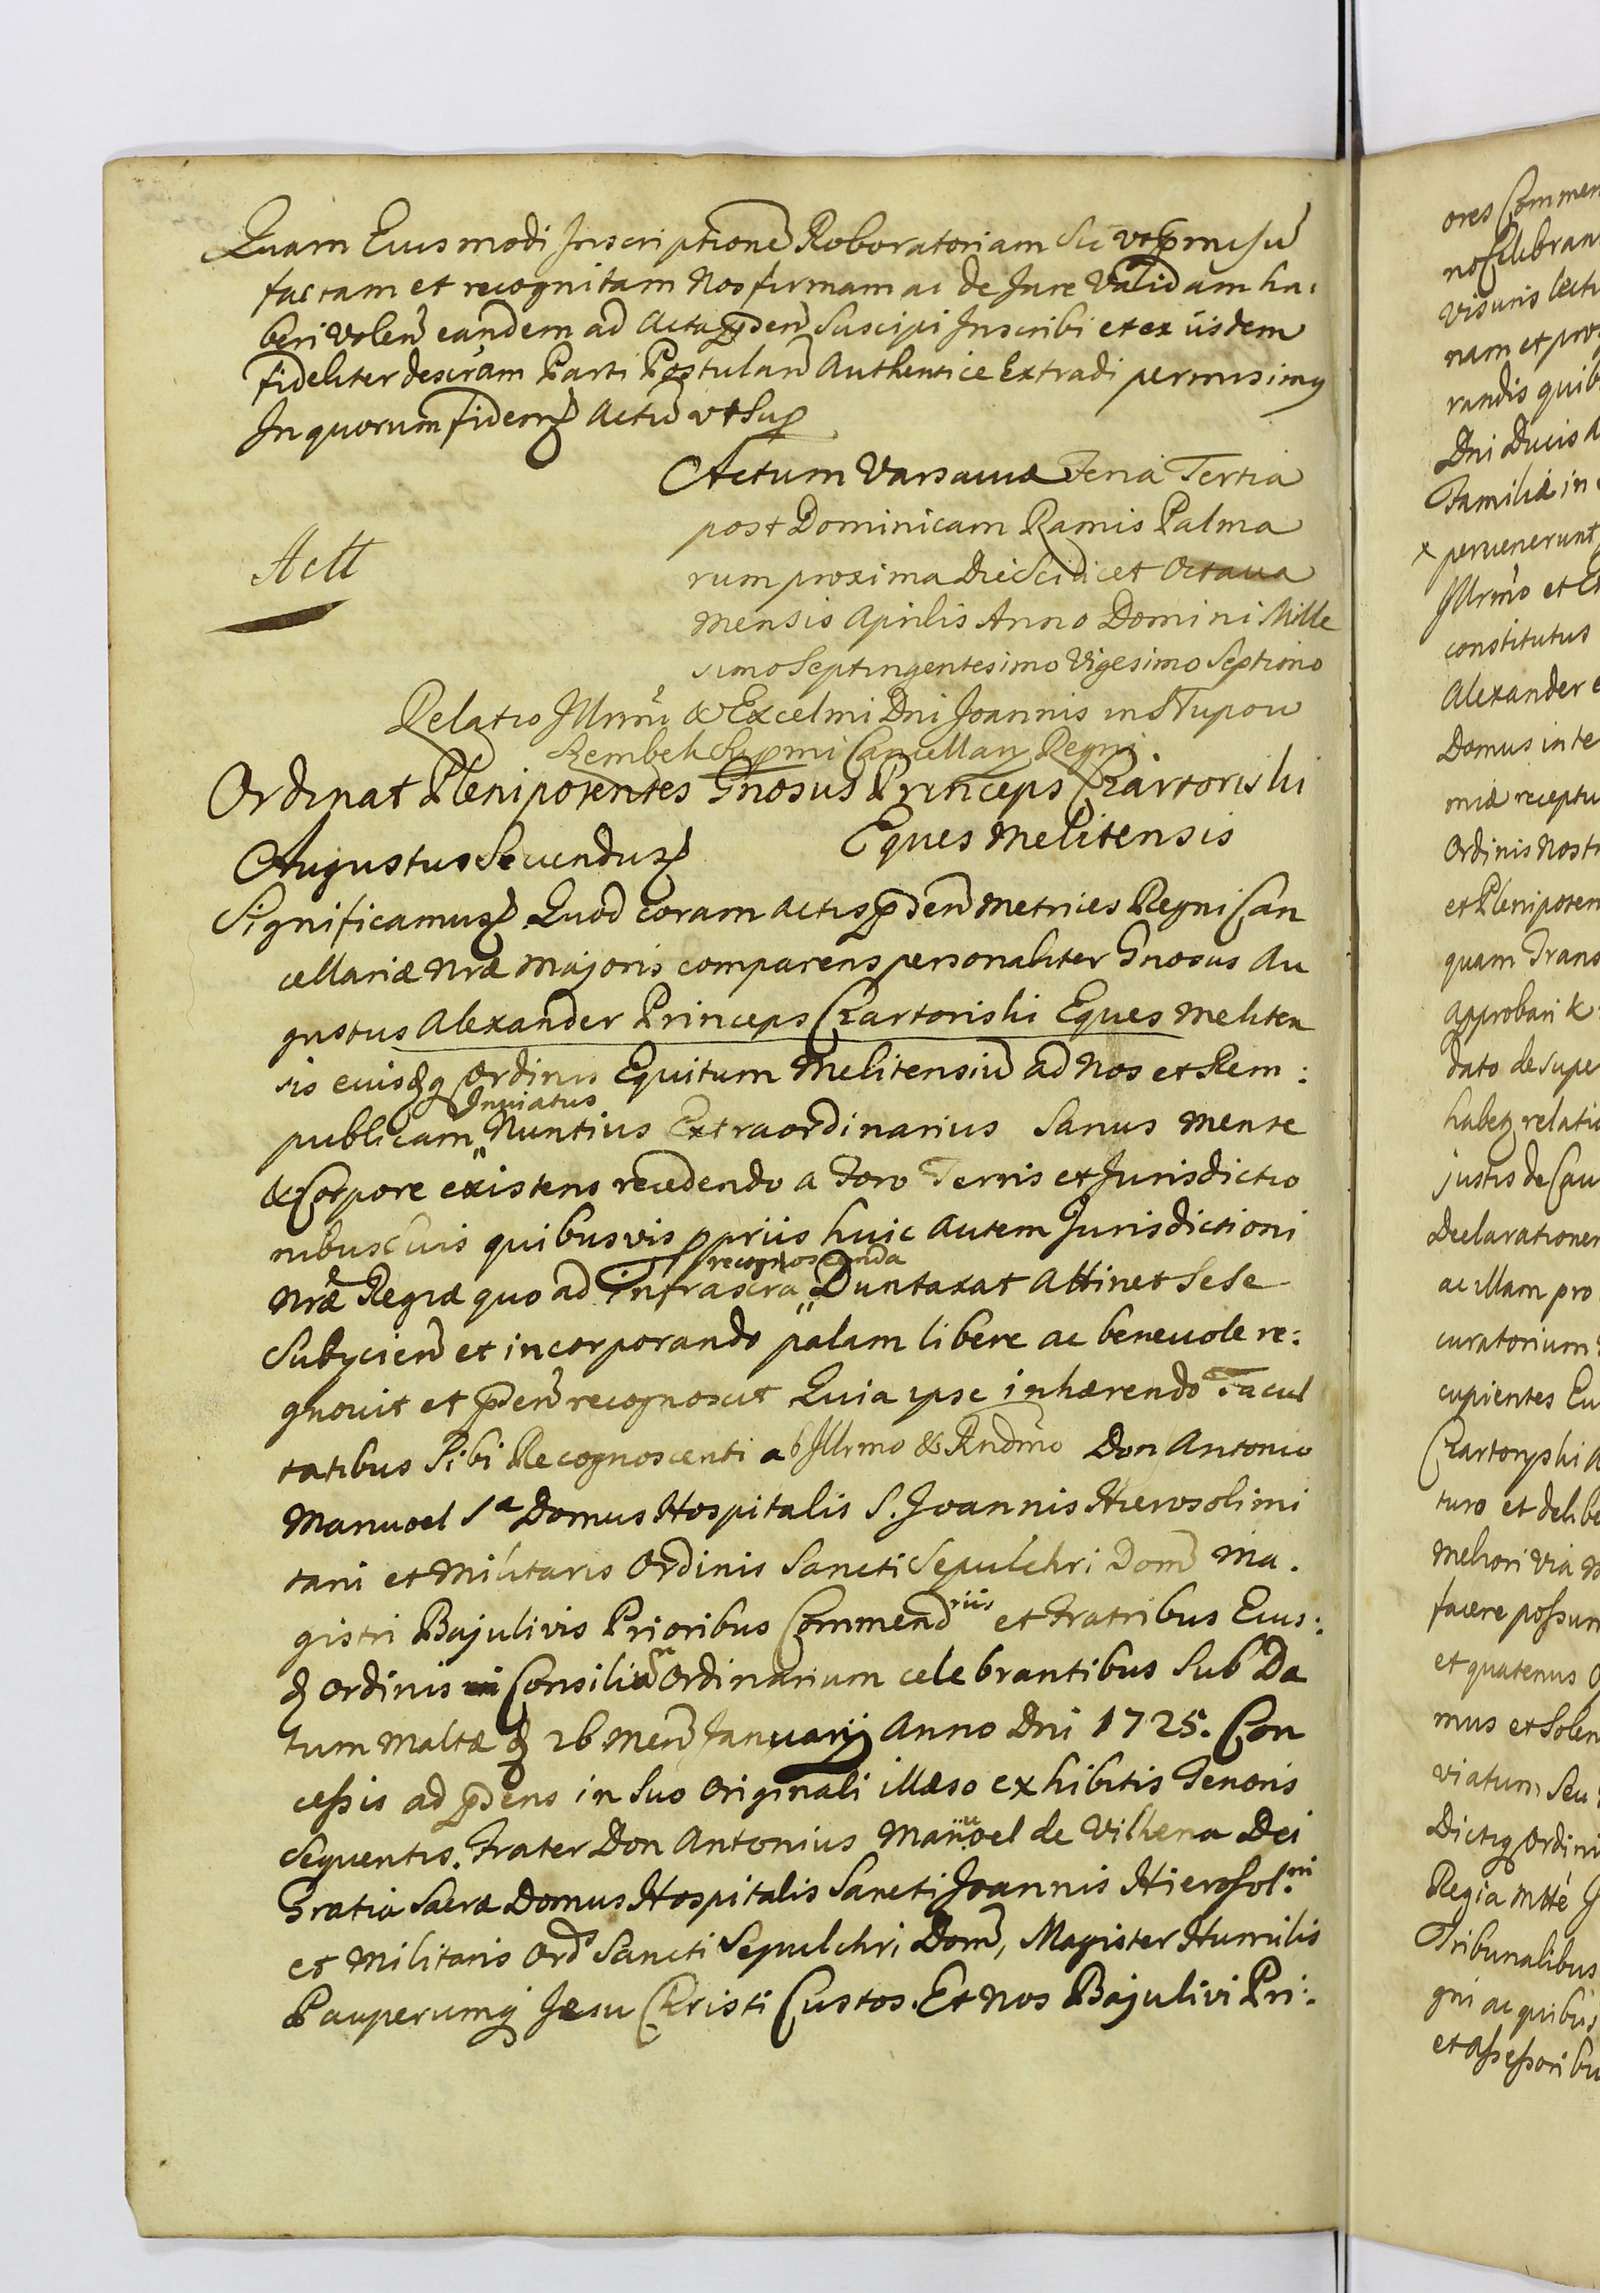 Quam Eiusmodi Inscriptionē Roboratoriam
factam et recognitam Nos firmam ac de Jure Validam ha:
beri Volen̄ eandem ad Acta p̄sen̄ Suscipi Inscribi et ex iisdem
fideliter descr̄am Parti Postulan̄ Authentice Extradi permisimus
In quorum fidem Actū vt Sup
Actum Varsauiæ Feria Tertia
post Dominicam Ramis Palma
rum proxima Die Scilicet Octaua
mensis Aprilis Anno Domini Mille
simo Septingentesimo Vigesimo Septimo
Actt
Relatio Illrmi & Excelmi Dni Joannis in Slupow
Szembek Supmi Cancellarÿ Regni.
Ordinat Plenipotentes Gnosus Princeps Czartoriski
Eques Melitensis
Augustus Secundus
Significamus Quod coram Actis p̄sen̄ Metrices Regni Can
cellariæ Nræ Majoris comparens personaliter Gnosus Au
gustus Alexander Princeps Czartoriski Eques Meliten
sis eiusdq Ordinis Equitum Melitensiū ad Nos et Rem:
Inuiatus
publicam Nuntius Extraordinarius Sanus Mente
& Corpore existens recedendo a Foro Terris et Jurisdictio
nibus suis quibusvis ppriis huic autem Jurisdictioni
recognoscenda
Nræ Regiæ quo ad infrascra Duntaxat Attinet Sese
Subycien̄ et incorporando palam libere ac beneuole re:
gnouit et p̄sen̄ recognoscit Quia ipse inhærendo Facul
tatibus Sibi Recognoscenti ab Illrmo & Rndmo Don Antonio
Manuoel Sa Domus Hospitalis S. Joannis Hierosolimi
tani et Militaris Ordinis Sancti Sepulchri Dom̄ Ma.
gistri Bajulivis Prioribus Commendriis et Fratribus Eius:
d Ordinis Consiliū Ordinarium celebrantibus Sub Da
tum Maltæ d 26 Men̄ Januarÿ Anno Dni 1725. Con
cessis ad p̄sens in Suo Originali illæso exhibitis Tenoris
Sequentis. Frater Don Antonius Manoel de Vilhena Dei
Gratia Sacræ Domus Hospitalis Sancti Joannis Hierosol.ni
et Militaris Ords Sancti Sepulchri Dom̄, Magister Humilis
Pauperumq Jesu Christi Custos. Et Nos Bajulivi Pri:
ores Commen
no Celebran
visuris lectu
nam et pros
randis quib
Dni Ducis A
Familiæ in
x peruenerunt
Illrmo et E
constitutus
Alexander e
Domus in te
miæ receptu
Ordinis Nostr
et Plenipoten
quam Trans
approbari
dato de supe
habeq relatio
justis de Cau
Declarationem
ac illam pro
curatorium
cupientes Eu
Czartoryski A
turo et delibe
Meliori Via
facere possum
et quatenus
mus et Solen
viatum Seu
Dictiq Ordini
Regia Mtte
Tribunalibus
gni ac quibus
et Assessoribu